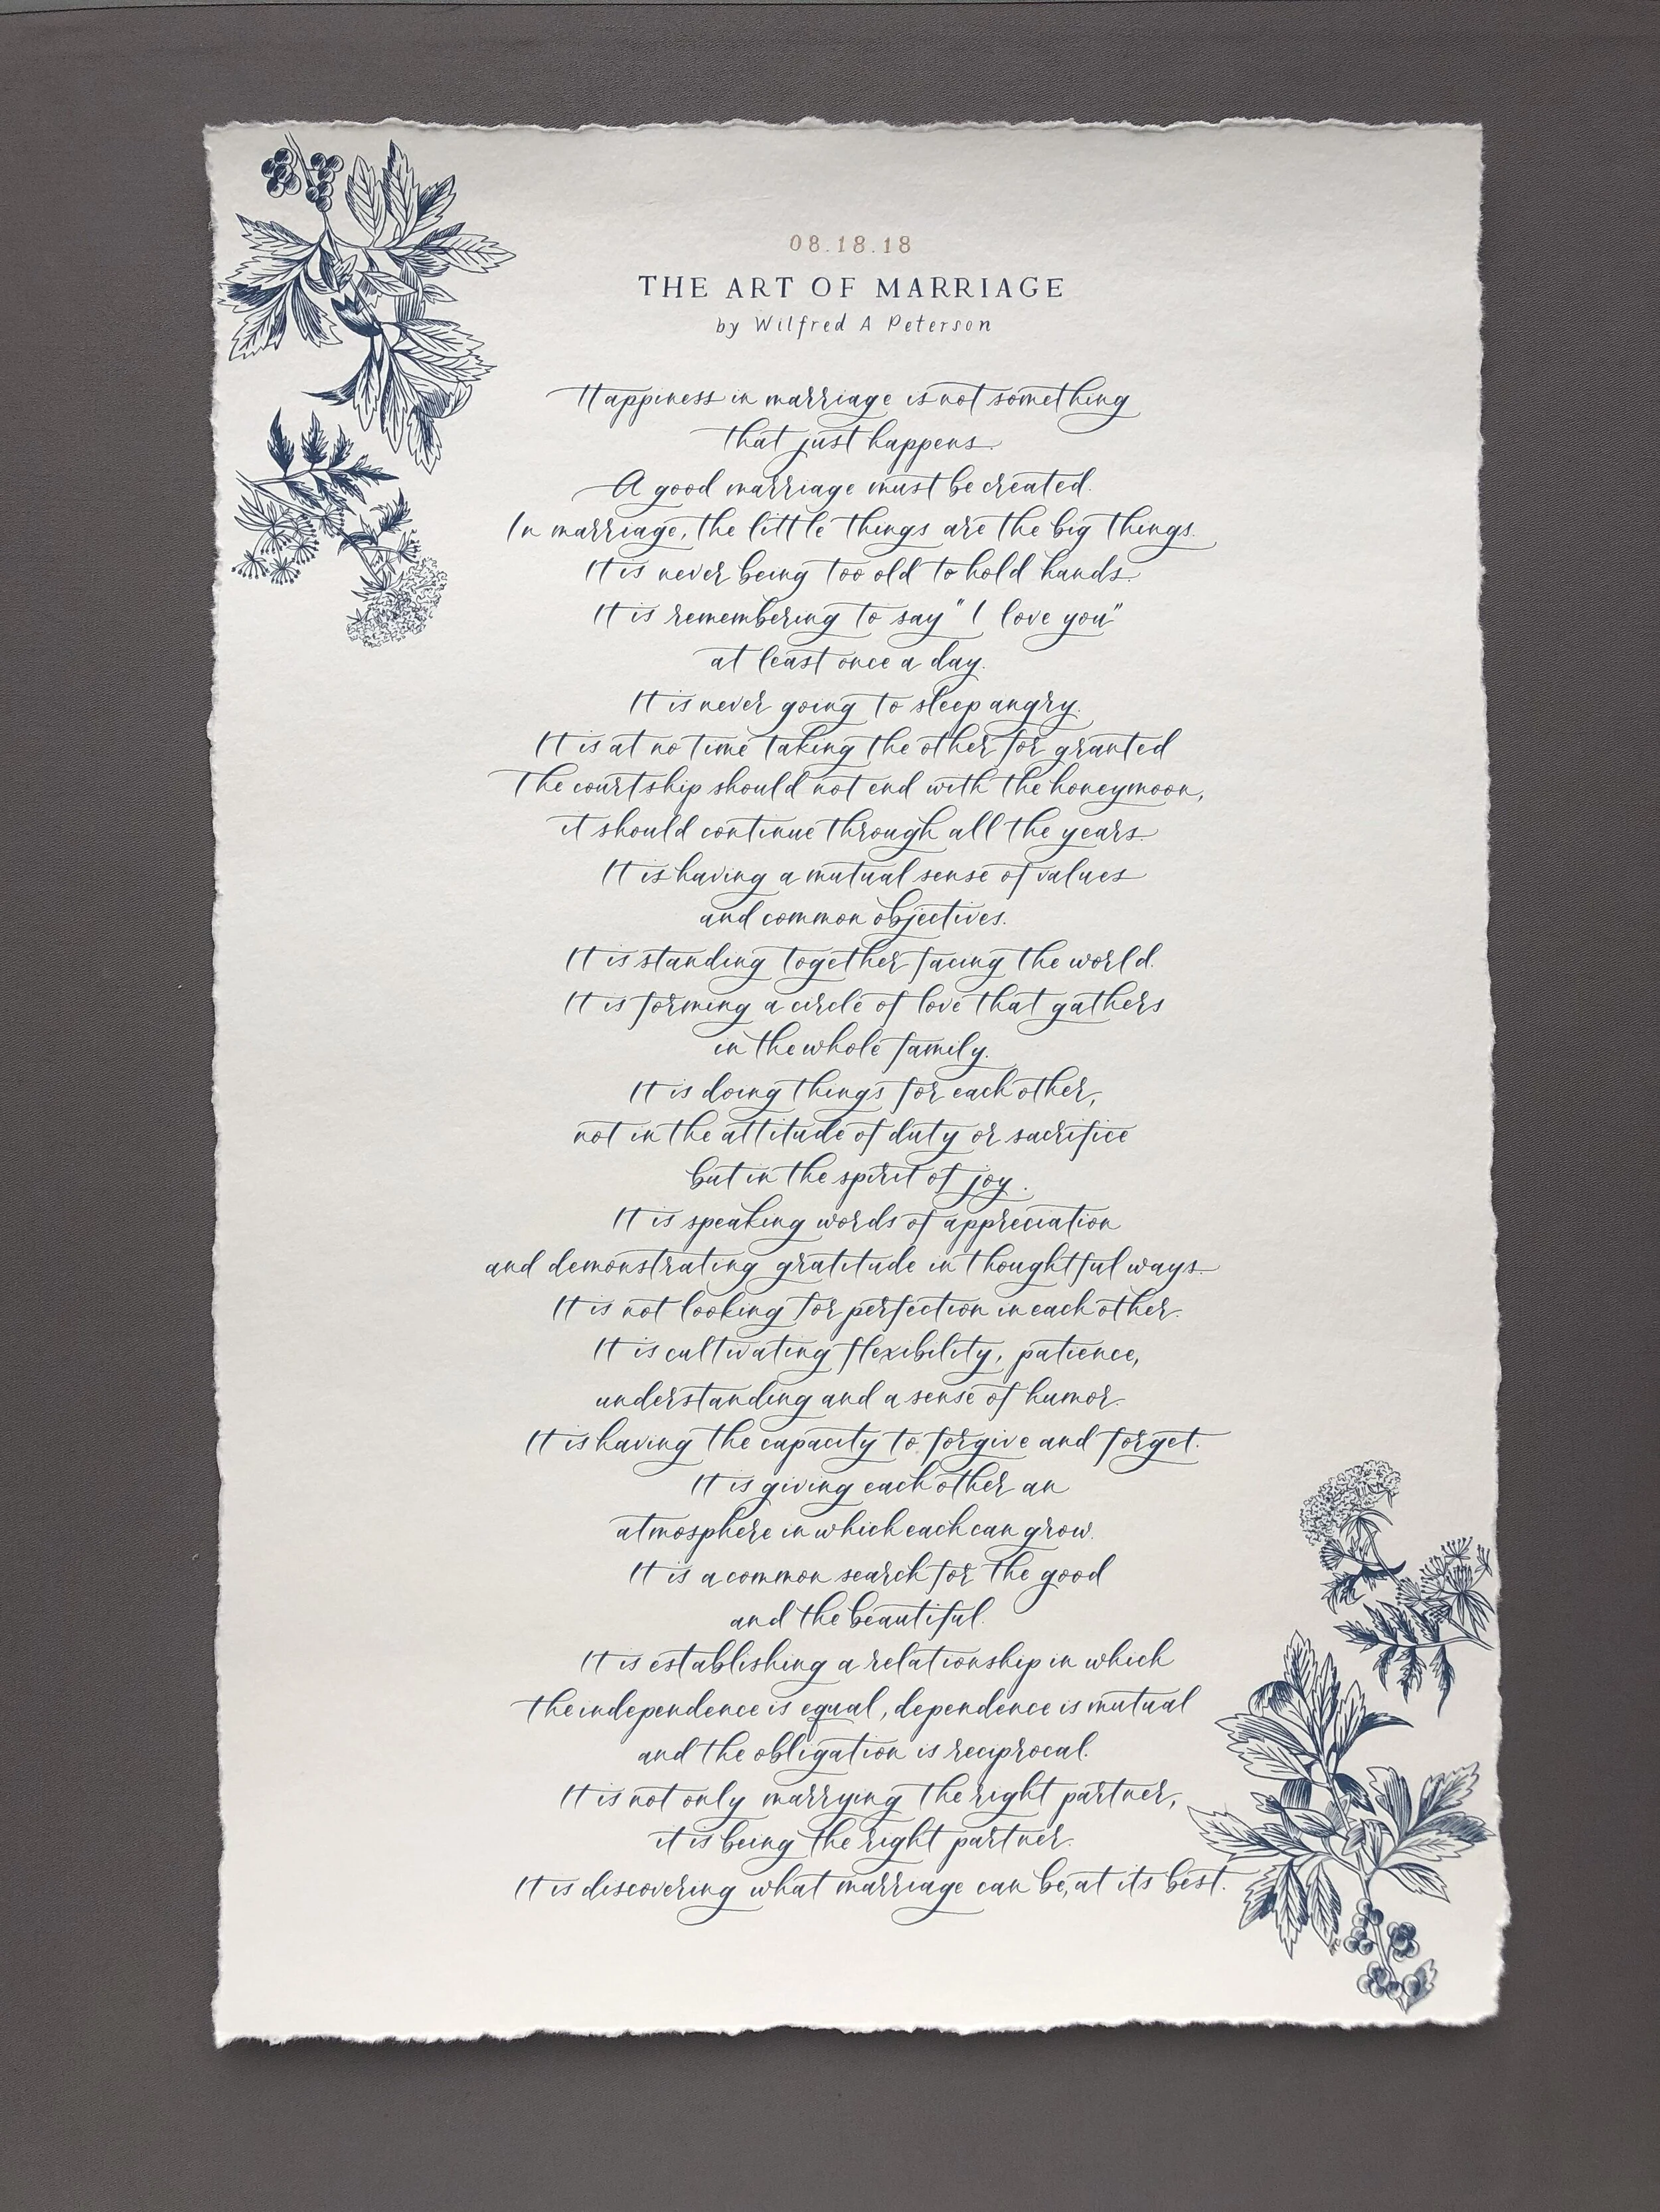 08.18.18
THE ART OF MARRIAGE
by Wilfred A Peterson
Happiness in marriage is not something
that just happens.
A good marriage must be created.
In marriage, the little things are the big things.
It is never being too old to hold hands.
It is remembering to say "I love you"
at least once a day.
It is never going to sleep angry.
It is at no time taking the other for granted
The courtship should not end with the honeymoon,
it should continue through all the years.
It is having a mutual sense of values
and common objectives.
It is standing together facing the world.
It is forming a circle of love that gathers
in the whole family.
It is doing things for each other,
not in the attitude of duty or sacrifice
but in the spirit of joy.
It is speaking words of appreciation
and demonstrating gratitude in thoughtful ways.
It is not looking for perfection in each other.
It is cultivating flexibility, patience,
understanding and a sense of humor.
It is having the capacity to forgive and forget.
It is giving each other an
atmosphere in which each can grow.
It is a common search for the good
and the beautiful.
It is establishing a relationship in which
the independence is equal, dependence is mutual
and the obligation is reciprocal.
It is not only marrying the right partner,
it is being the right partner.
It is discovering what marriage can be, at its best.